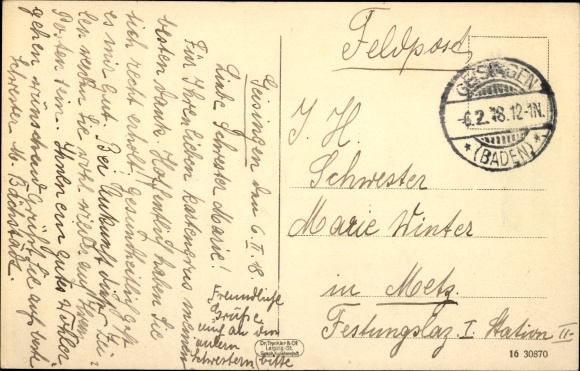 Geisingen den 6 II 18.
Liebe Schwester Marie!
Für Ihren lieben Kartengruss meinen
besten Dank. Hoffentlich haben Sie
sich recht erholt. Gesundheitlich geht
es mir gut. Bei Ankunft dieser Zei-
len werden Sie wohl wieder auf Ihrem
Posten sein. Ihnen ein gutes Wohler-
gehen wünschend grüsst Sie aufs beste
Schwester M.
Freundliche
Grüße
auch an die
andern
Schwestern bitte
Feldpost
GEISINGEN
-6.2.18.12-1N.
* (BADEN) *
J. H.
Schwester
Marie Winter
in Metz.
Festungslaz. I. Station II
Dr. Trenkler & Co
Leipzig-St.
16 30870